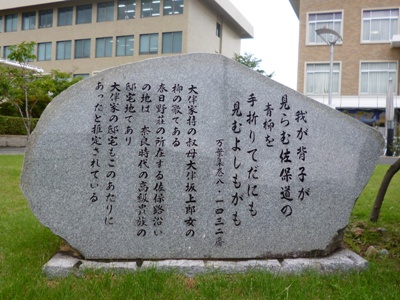 我が背子が
見らむ佐保道の
青柳を
手折りてだにも
見むよしもがも
万葉集巻八・一四三二番
大伴家持の叔母大伴坂上郎女の
柳の歌である
春日野荘の所在する佐保路沿い
の地は 奈良時代の高級貴族の
邸宅地であり
大伴家の邸宅もこのあたりに
あったと推定されている